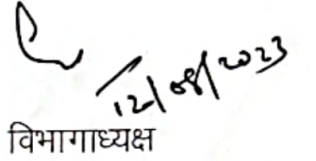 12/08/2023
विभागाध्यक्ष